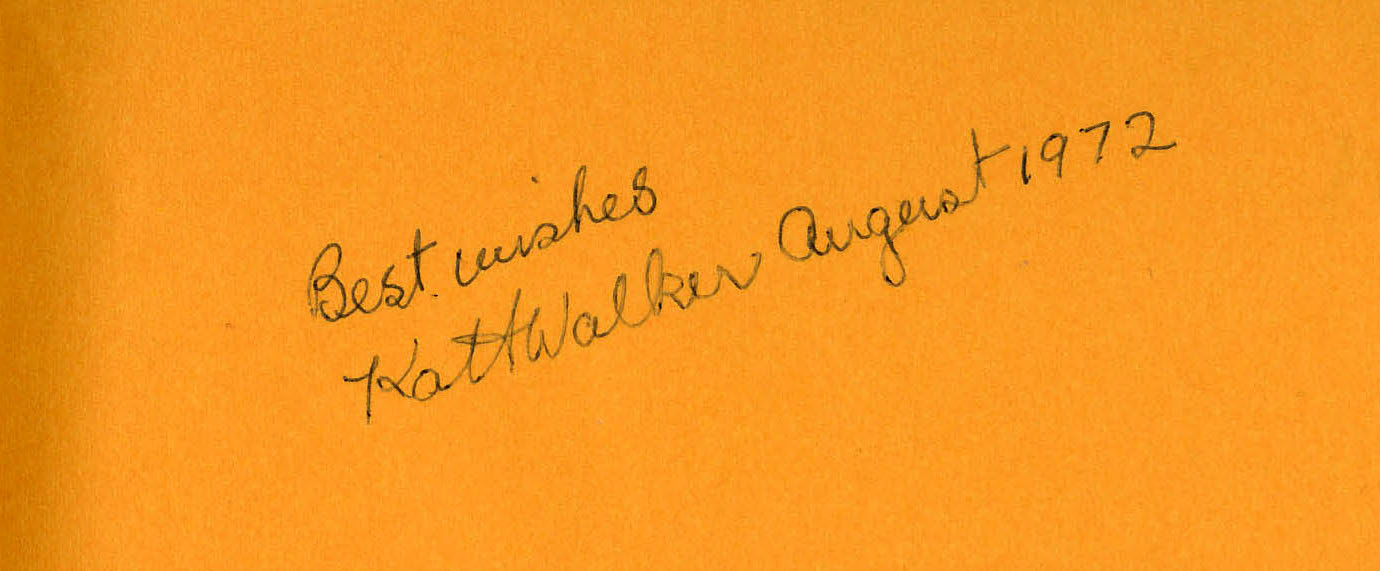 Best wishes
Kath Walker August 1972